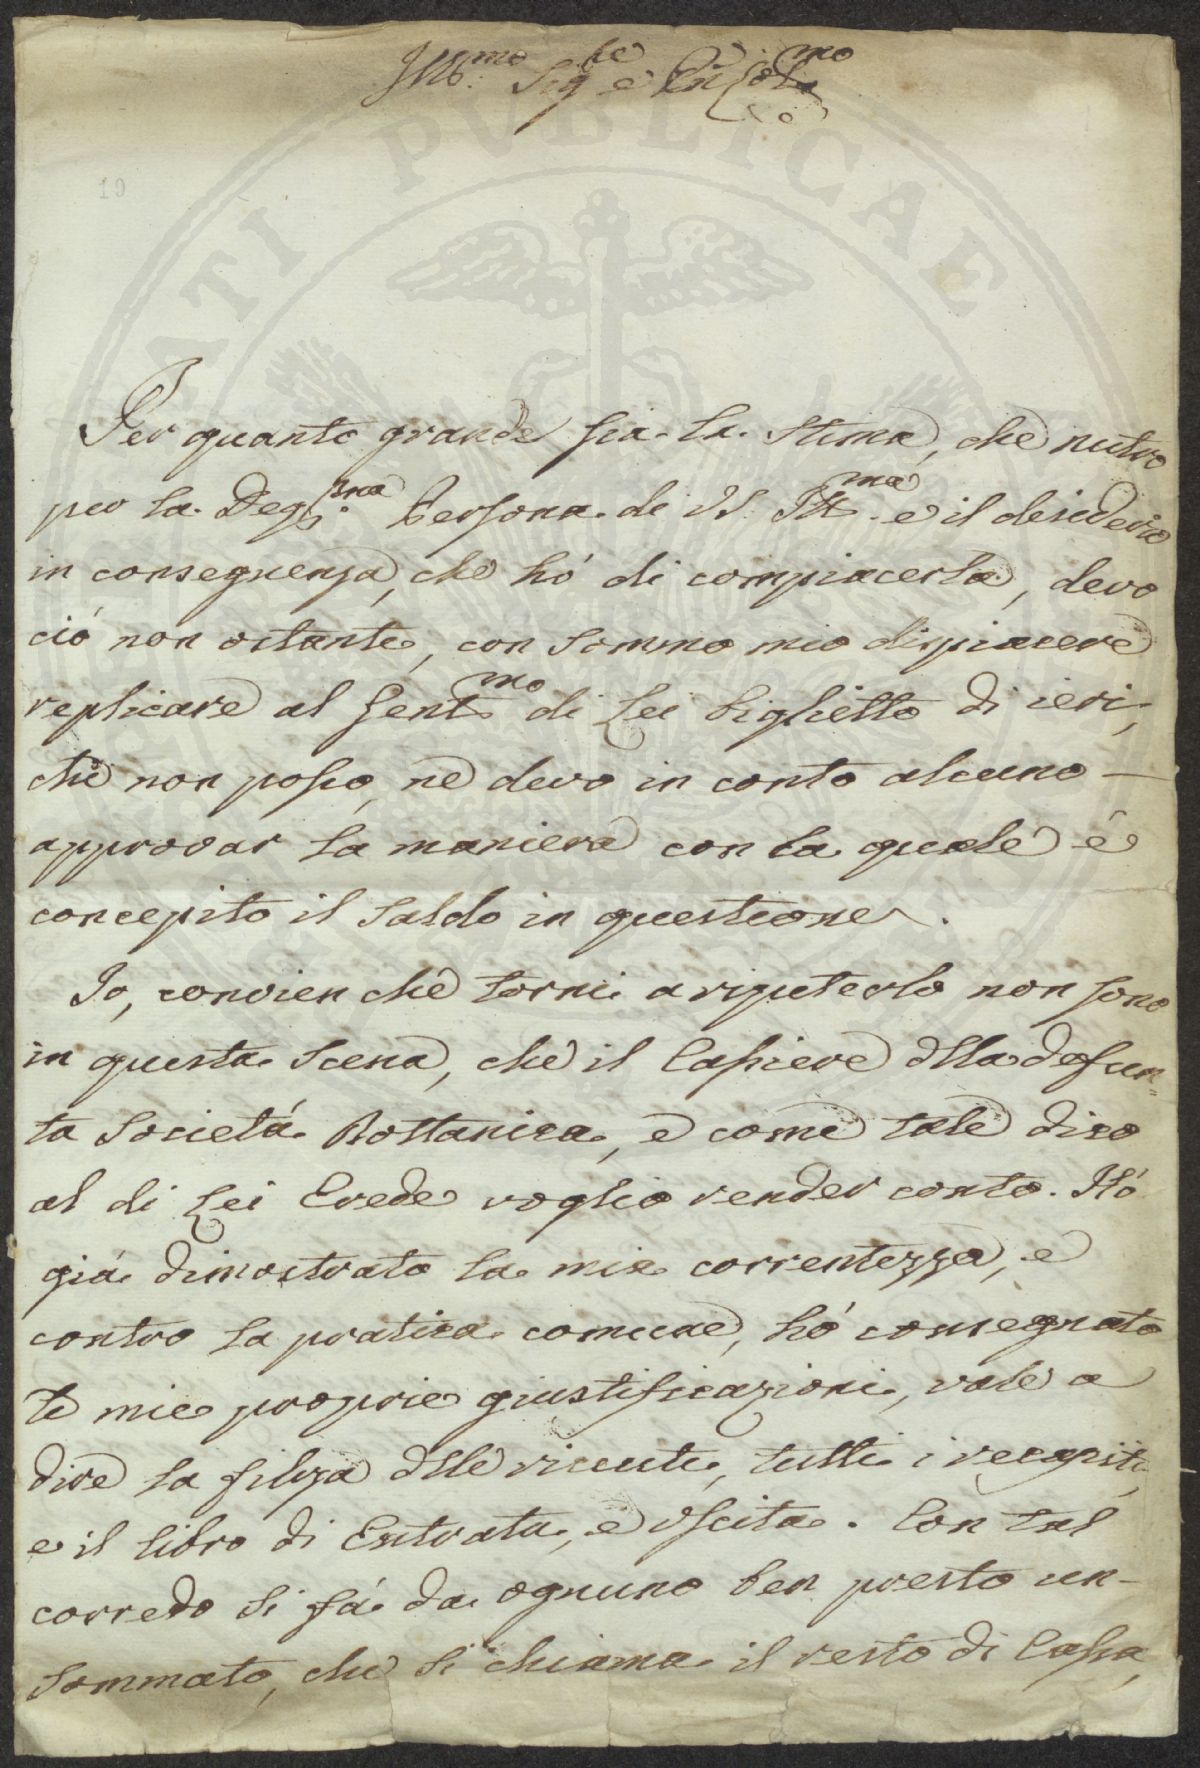 Ill.mo Sig.re e Pn Col.mo
19
Per quanto grande sia la stima, che nutro
per la Deg.ma Persona di VS. Ill.ma e il desiderio
in conseguenza, che hó di compiacerla, devo
ció non ostante, con sommo mio dispiacere
replicare al Gent.mo di Lei biglietto di ieri,
che non posso, ne devo in conto alcuno —
approvar la maniera con la quale é
concepito il saldo in questione.
Io, convien che torni a riputerlo non sono
in questa scena, che il Cassiere della defun-
ta Societá Bottanica, e come tale dico
al di Lei Erede voglio render conto. Hó
giá dimostrato la mia correntezza, e
contro la pratica comune, hó consegnato
le mie proprie giustificazioni, vale a
dire la filza delle ricevute, tutti i recapiti,
e il libro di Entrata, e Uscita. Con tal
corredo si fá da ognuno ben presto un-
sommato, che si chiama il resto di Cassa,
PVBLICAE